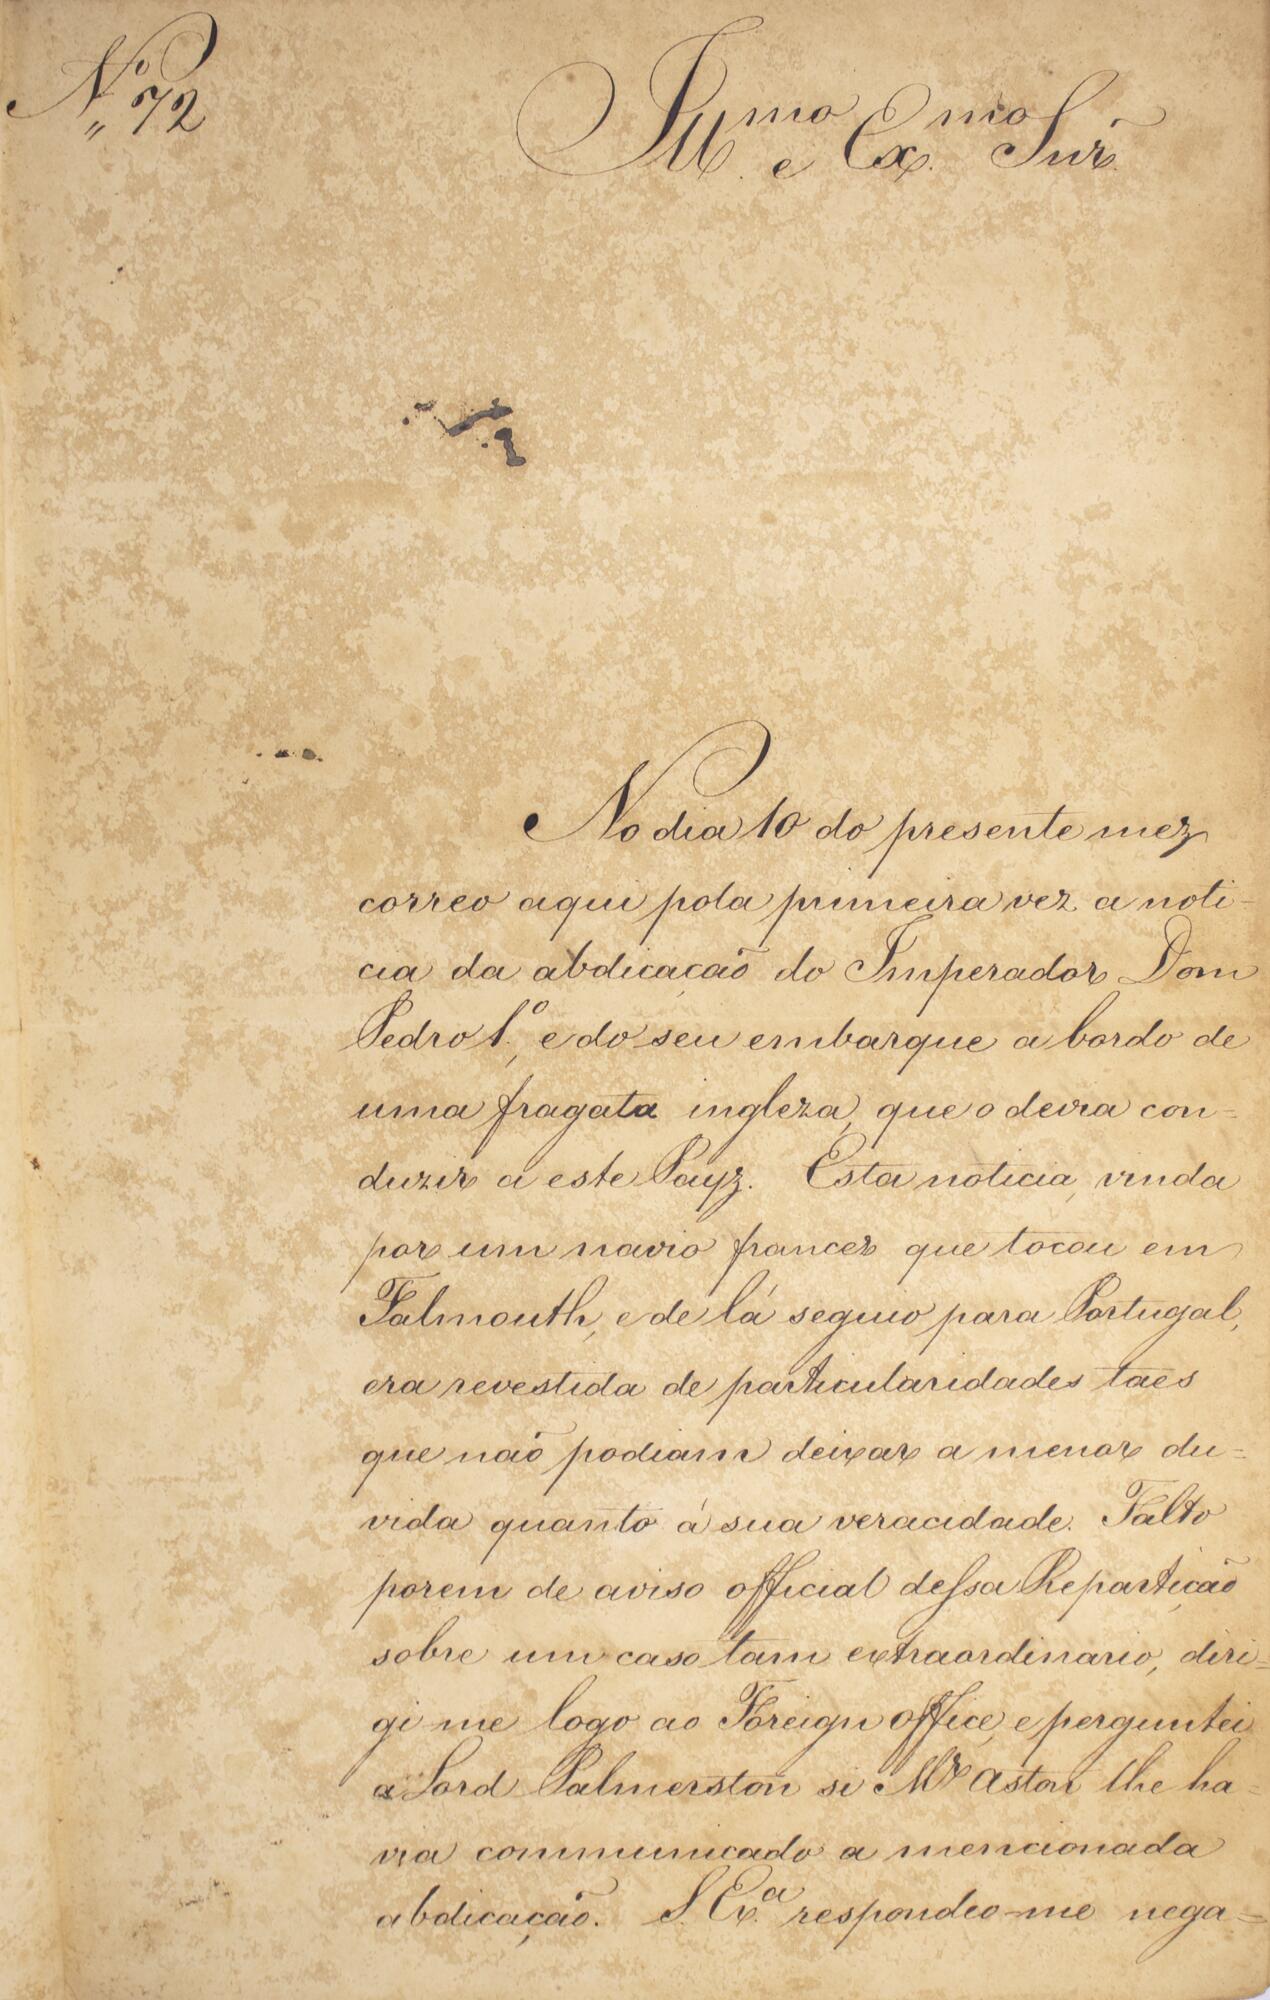 Nº 72
Illmo e Exmo Snr
No dia 10 do presente mez
correo aqui pola primeira vez a noti-
cia da abdicação do Imperador Dom
Pedro 1º, e do seu embarque a bordo de
uma fragata ingleza, que o devia con-
duzir a este Payz. Esta noticia, vinda
por um navio francez que tocou em
Falmouth, e de lá seguio para Portugal,
era revestida de particularidades taes
que não podiam deixar a menor du-
vida quanto á sua veracidade. Falto
porem de aviso official dessa Repartição
sobre um caso tam extraordinario, diri-
gi me logo ao Foreign office, e perguntei
a Lord Palmerston si Mr Aston lhe ha-
via communicado a mencionada
abdicação. S. Exª respondeo-me nega-